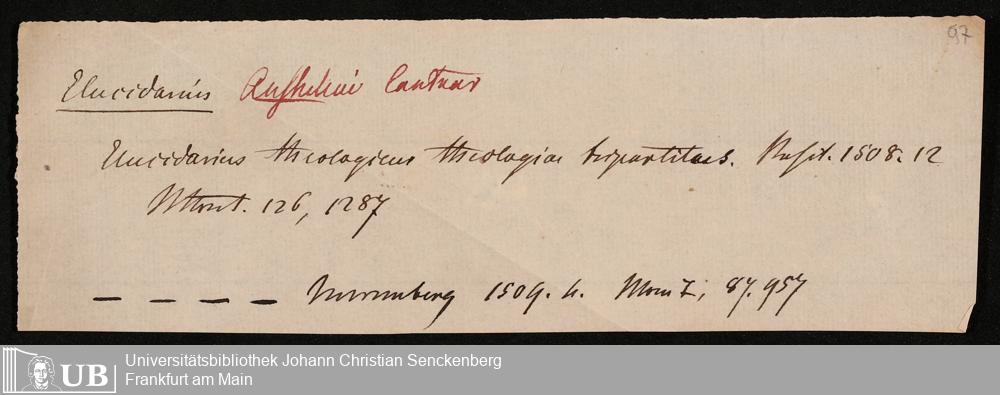 97
Elucidarius Anshelmi Cantuar
Elucidarius theologicus theologiae tripartitus. 1508. 12
126, 1287
— — — — Nurenberg 1509. 4. 87. 957
UB
Universitätsbibliothek Johann Christian Senckenberg
Frankfurt am Main